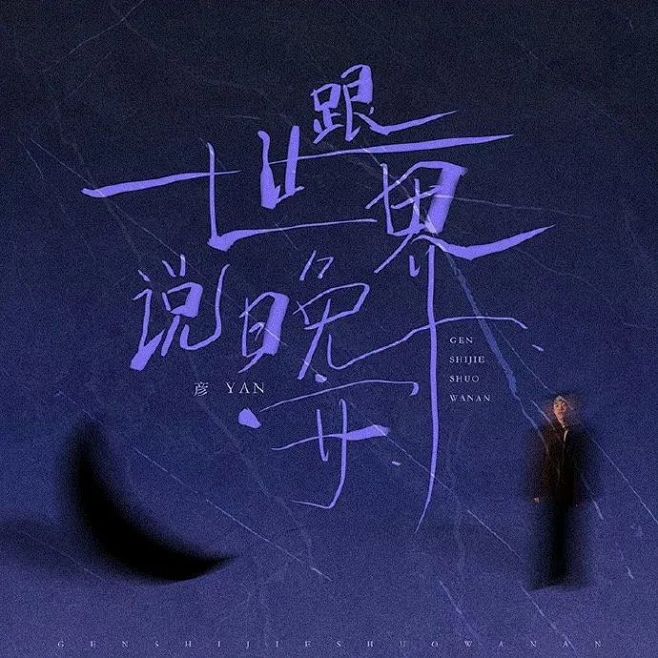 跟
世界
说晚安
彦 YAN
GEN
SHIJIE
SHUO
WANAN
GENSHIJIESHUOWANAN